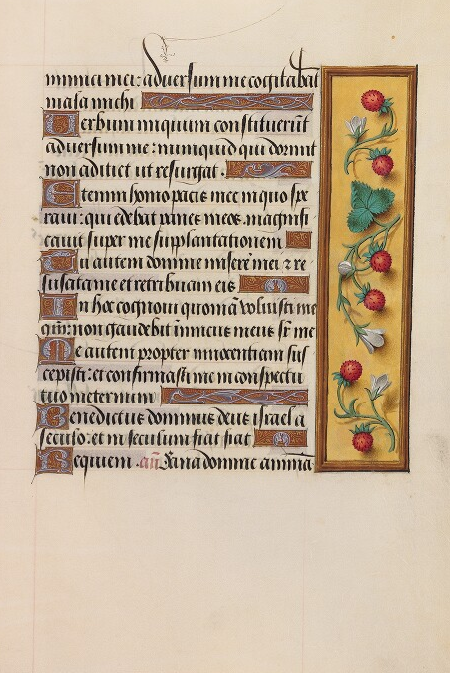 inimici mei: adversum me cogitabāt
mala michi
Verbum iniquum constituerūt
adversum me: numquid qui dormit
non adiciet ut resurgat.
Etenim homo pacis mee in quo spe
ravi: qui edebat panes meos magnifi
cavit super me supplantationem
Tu autem domine miserere mei z re
suscita me et retribuam eis
In hoc cognovi quoniā voluisti me
qm̄ non gaudebit inimicus meus sr̄ me
Me autem propter innocentiam sus
cepisti: et confirmasti me in conspectu
tuo in eternum
Benedictus dominus deus israel a
seculo: et in seculum fiat fiat
Requiem. añ. Sana domine animā